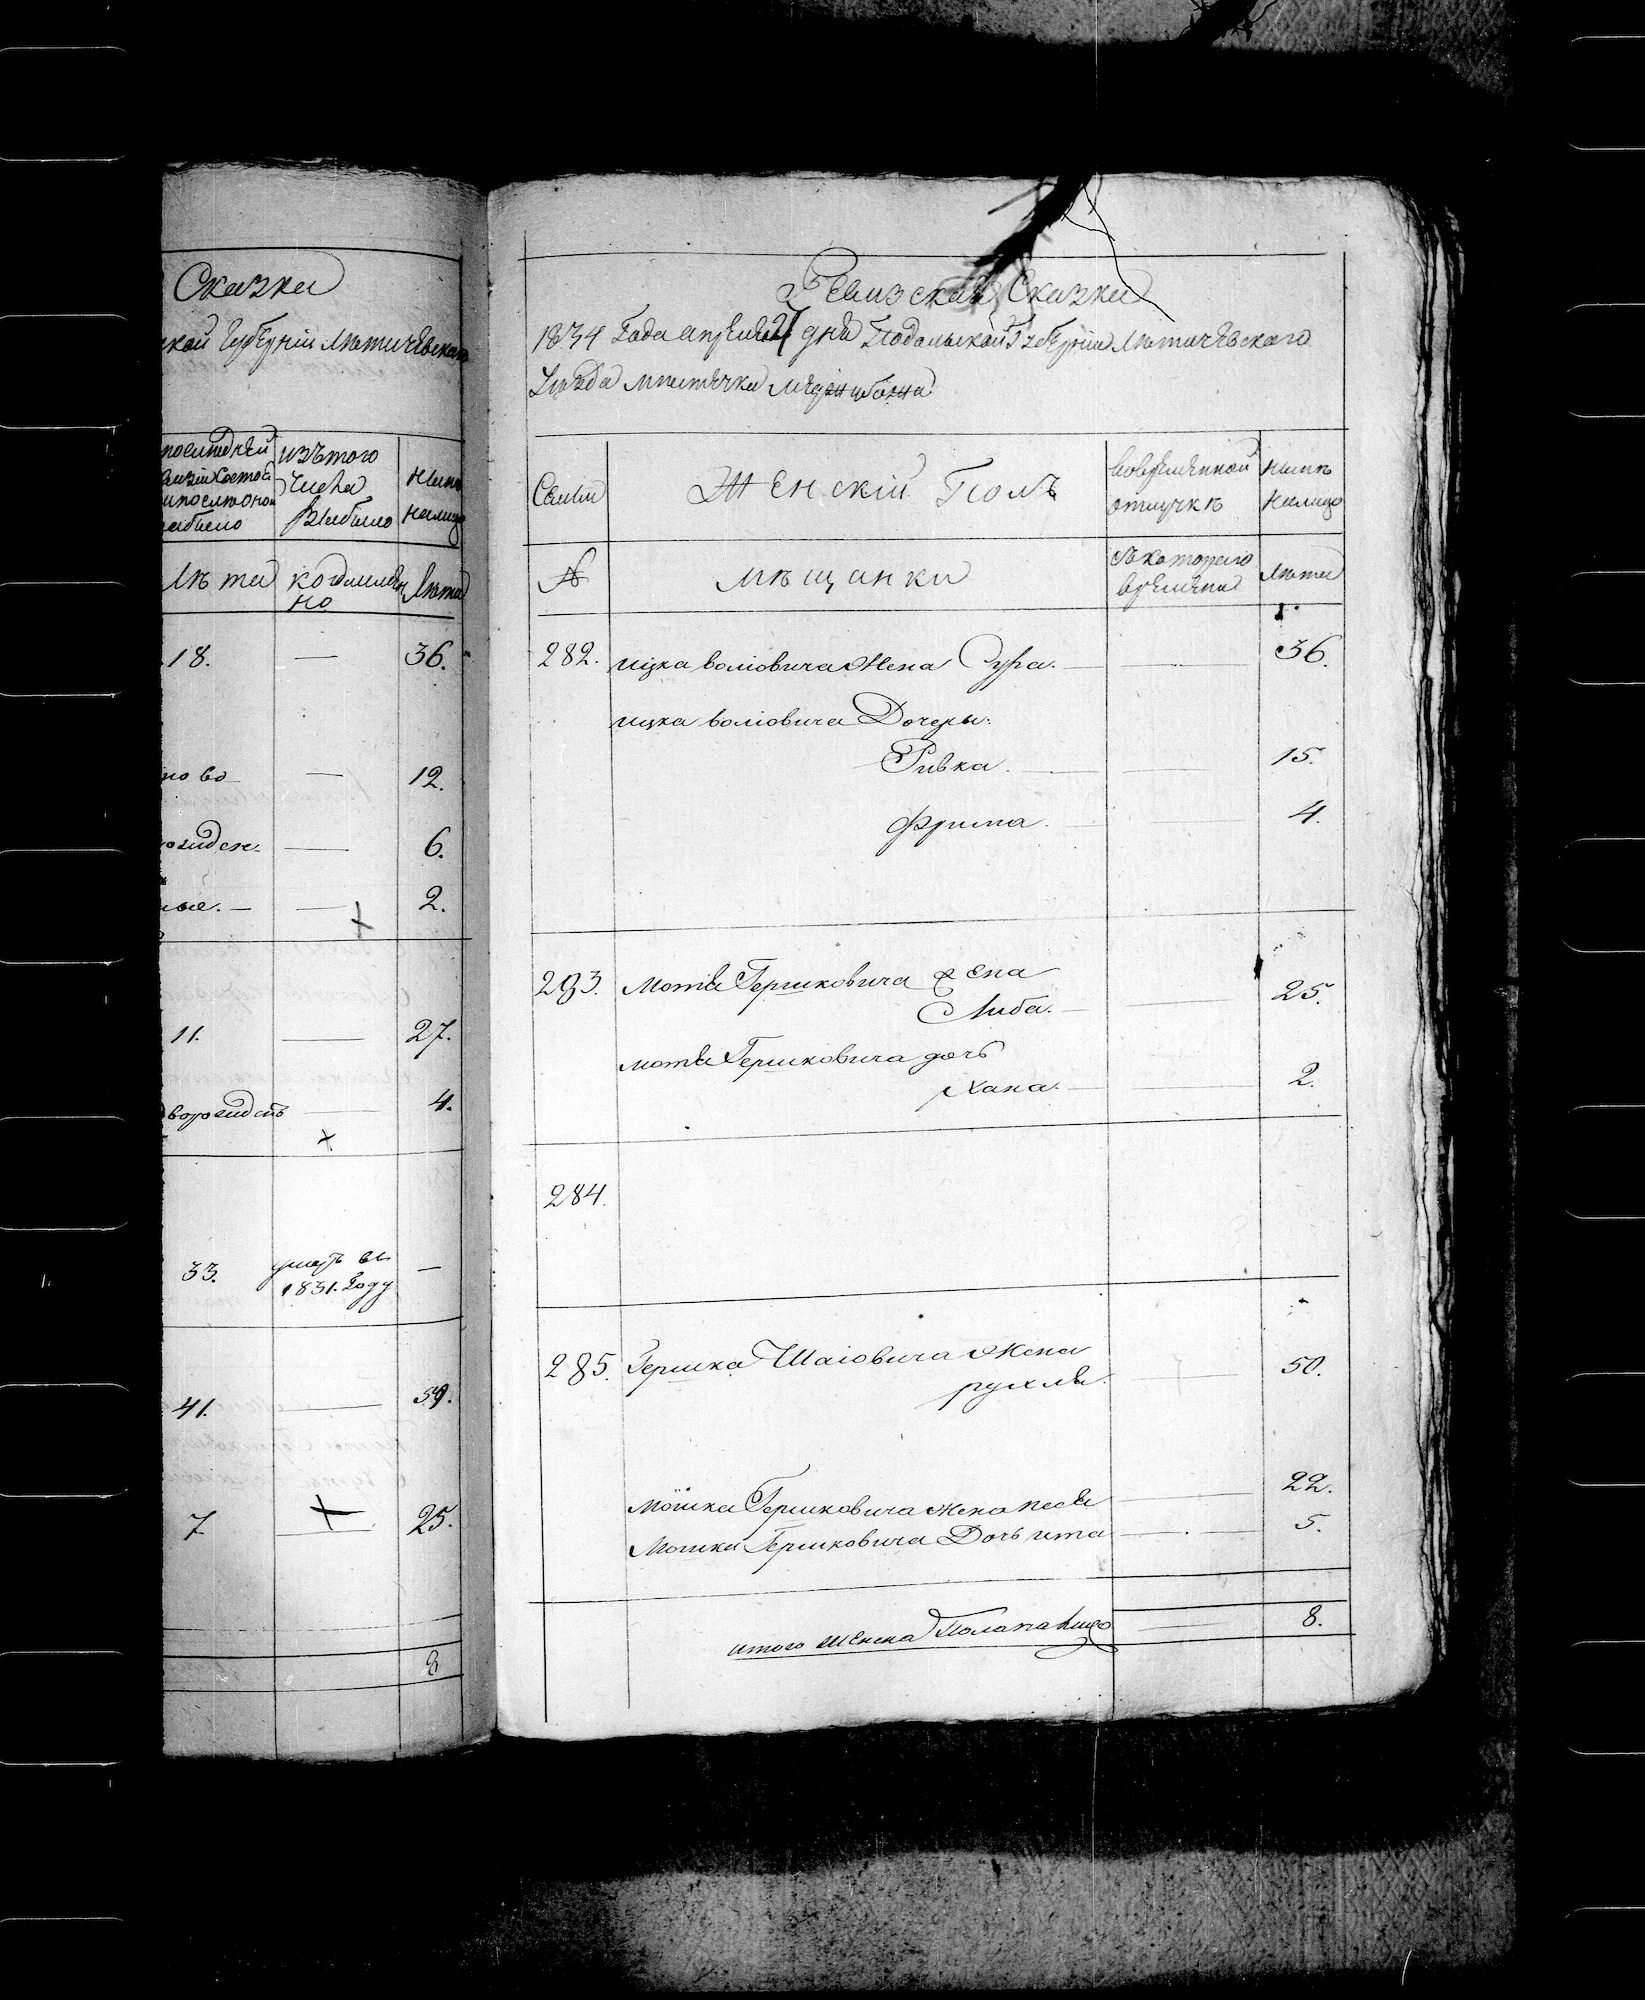 Сказки
ской Губерніи Летичевского
изъ того
числа
выбыло
ныне
налицо
Лета
когда имен
но
Лета
18. — 36.
но во — 12.
— 6.
— 2.
11. — 27.
4.
33. умеръ въ —
1831. Году
41. — 59.
7 — 25.
8
Ревизская Сказка
1834 Года апреля 27 дня Подольской Губерніи Летичевского
Уезда местечка Меджибожа
Семьи
Женскій Полъ
вовременной
отлучке
ныне
налицо
№
мещанки
съ которого
времени
Лета
282. ицка волiовича Жена Сура. — — 36.
ицка волiовича Дочеры:
Ривка. — — 15.
Фрима. — — 4.
283. Мотя Гершковича Жена
Либа. — — 25.
мотя Гершковича дочь
Хана. — — 2.
284.
285. Гершка Шаiовича Жена
рухля. — 50.
мошка Гершковича жена песя — — 22.
Мошка Гершковича Дочь ита — — 5.
итого женска Пола налицо — 8.